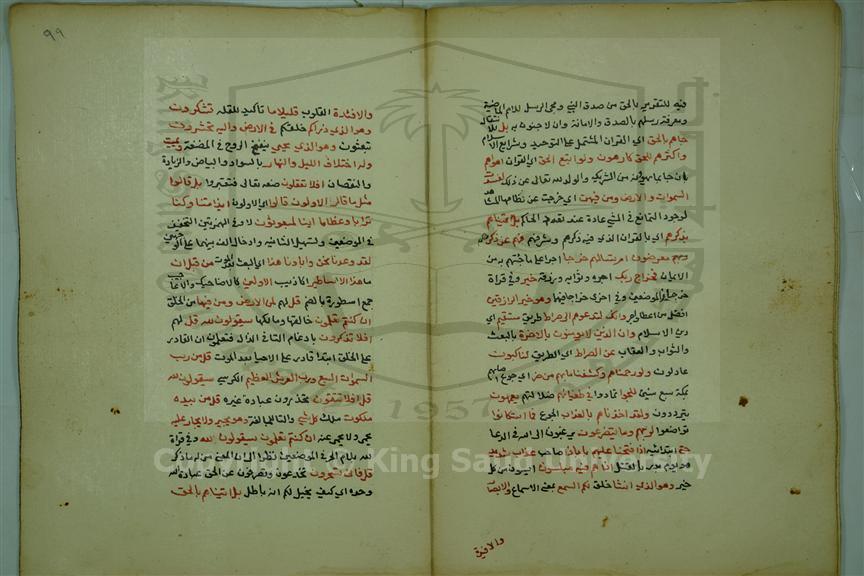 فيه للتقوي بالحق من صدق النبي ومجي الرسل للامم الماضية
ومعرفة رسلهم بالصدق والامانة وان لا جنون به بل للانتقال
جاهم بالحق اي القران المشتمل علي التوحيد وشرايع الاسلام
واكثرهم للحق كارهون ولو اتبع الحق اي القران اهواهم
بان جا بما يهوونه من الشريك والولد لله تعالي عن ذلك لفسدت
السموات والارض ومن فيهن اي خرجت عن نظامها المشاهد
لوجود التمانع في الشي عادة عند تعدد الحاكم بل اتيناهم
بذكرهم اي بالقران الذي فيه ذكرهم وشرفهم فهم عن ذكرهم
معرضون ام تسالهم خرجا اجرا علي ما جئتهم به من
الايمان فخراج ربك اجره وثوابه ورزقه خير وفي قراة
خرجا في الموضعين وفي اخري خراجا فيهما وهو خير الرازقين
افضل من اعطا واجر وانك لتدعوهم الي صراط طريق مستقيم اي
دين الاسلام وان الذين لا يومنون بالاخرة بالبعث
والثواب والعقاب عن الصراط اي الطريق لناكبون
عادلون ولو رحمناهم وكشفنا ما بهم من ضر اي جوع اصابهم
بمكة سبع سنين للجوا تمادوا في طغيانهم ضلالتهم يعمهون
يترددون ولقد اخذناهم بالعذاب الجوع فما استكانوا
تواضعوا لربهم وما يتضرعون يرغبون الي الله في الدعا
حتي ابتدائية اذا فتحنا عليهم بابا ذا صاحب عذاب شديد
هو يوم بدر بالقتل اذا هم فيه مبلسون ايسون من كل
خير وهو الذي انشا خلق لكم السمع بمعني الاسماع والابصار
والافئدة
٩٩
والافئدة القلوب قليلا ما تاكيد للقلة تشكرون
وهو الذي ذراكم خلقكم في الارض واليه تحشرون
تبعثون وهو الذي يحيي بنفخ الروح في المضغة ويميت
وله اختلاف الليل والنهار بالسواد والبياض والزيادة
والنقصان افلا تعقلون صنعه تعالي فتعتبروا بل قالوا
مثل ما قال الاولون قالوا اي الاولون ايذا متنا وكنا
ترابا وعظاما اينا لمبعوثون لا وفي الهمزتين التحقيق
في الموضعين وتسهيل الثانية وادخال الف بينهما علي الوجهين
لقد وعدنا نحن واباونا هذا اي البعث بعد الموت من قبل ان
ما هذا الا اساطير اكاذيب الاولين كالاضاحيك والاعاجيب
جمع اسطورة بالضم قل لهم لمن الارض ومن فيها من الخلق
ان كنتم تعلمون خالقها ومالكها سيقولون لله قل لهم
افلا تذكرون بادغام التا في الذال فتعلمون ان القادر
علي الخلق ابتدا قادر علي الاحيا بعد الموت قل من رب
السموات السبع ورب العرش العظيم الكرسي سيقولون لله
قل افلا تتقون تحذرون عبادة غيره قل من بيده
ملكوت ملك كل شي والتا للمبالغة وهو يجير ولا يجار عليه
يحمي ولا يحمي عنه ان كنتم تعلمون سيقولون الله وفي قراة
لله بلام الجر في الموضعين نظرا الي ان المعني من له ما ذكر
قل فاني تسحرون تخدعون وتصرفون عن الحق عبادة الله
وحده اي كيف يخيل لكم انه باطل بل اتيناهم بالحق
1957
Copyright © King Saud University